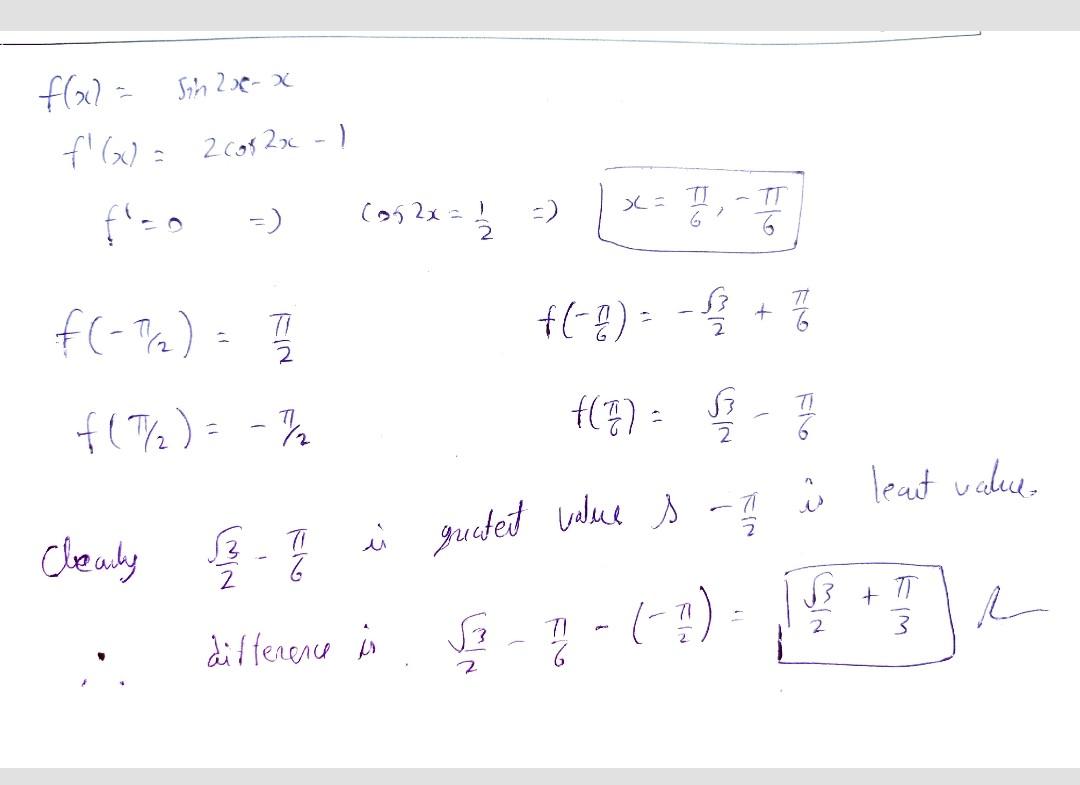 f(x) = sin 2x - x
f'(x) = 2cos 2x - 1
f' = 0 => cos 2x = 1/2 => x = π/6, -π/6
f(-π/2) = π/2 f(-π/6) = -√3/2 + π/6
f(π/2) = -π/2 f(π/6) = √3/2 - π/6
Clearly √3/2 - π/6 is greatest value & -π/2 is least value.
∴ difference is √3/2 - π/6 - (-π/2) = √3/2 + π/3